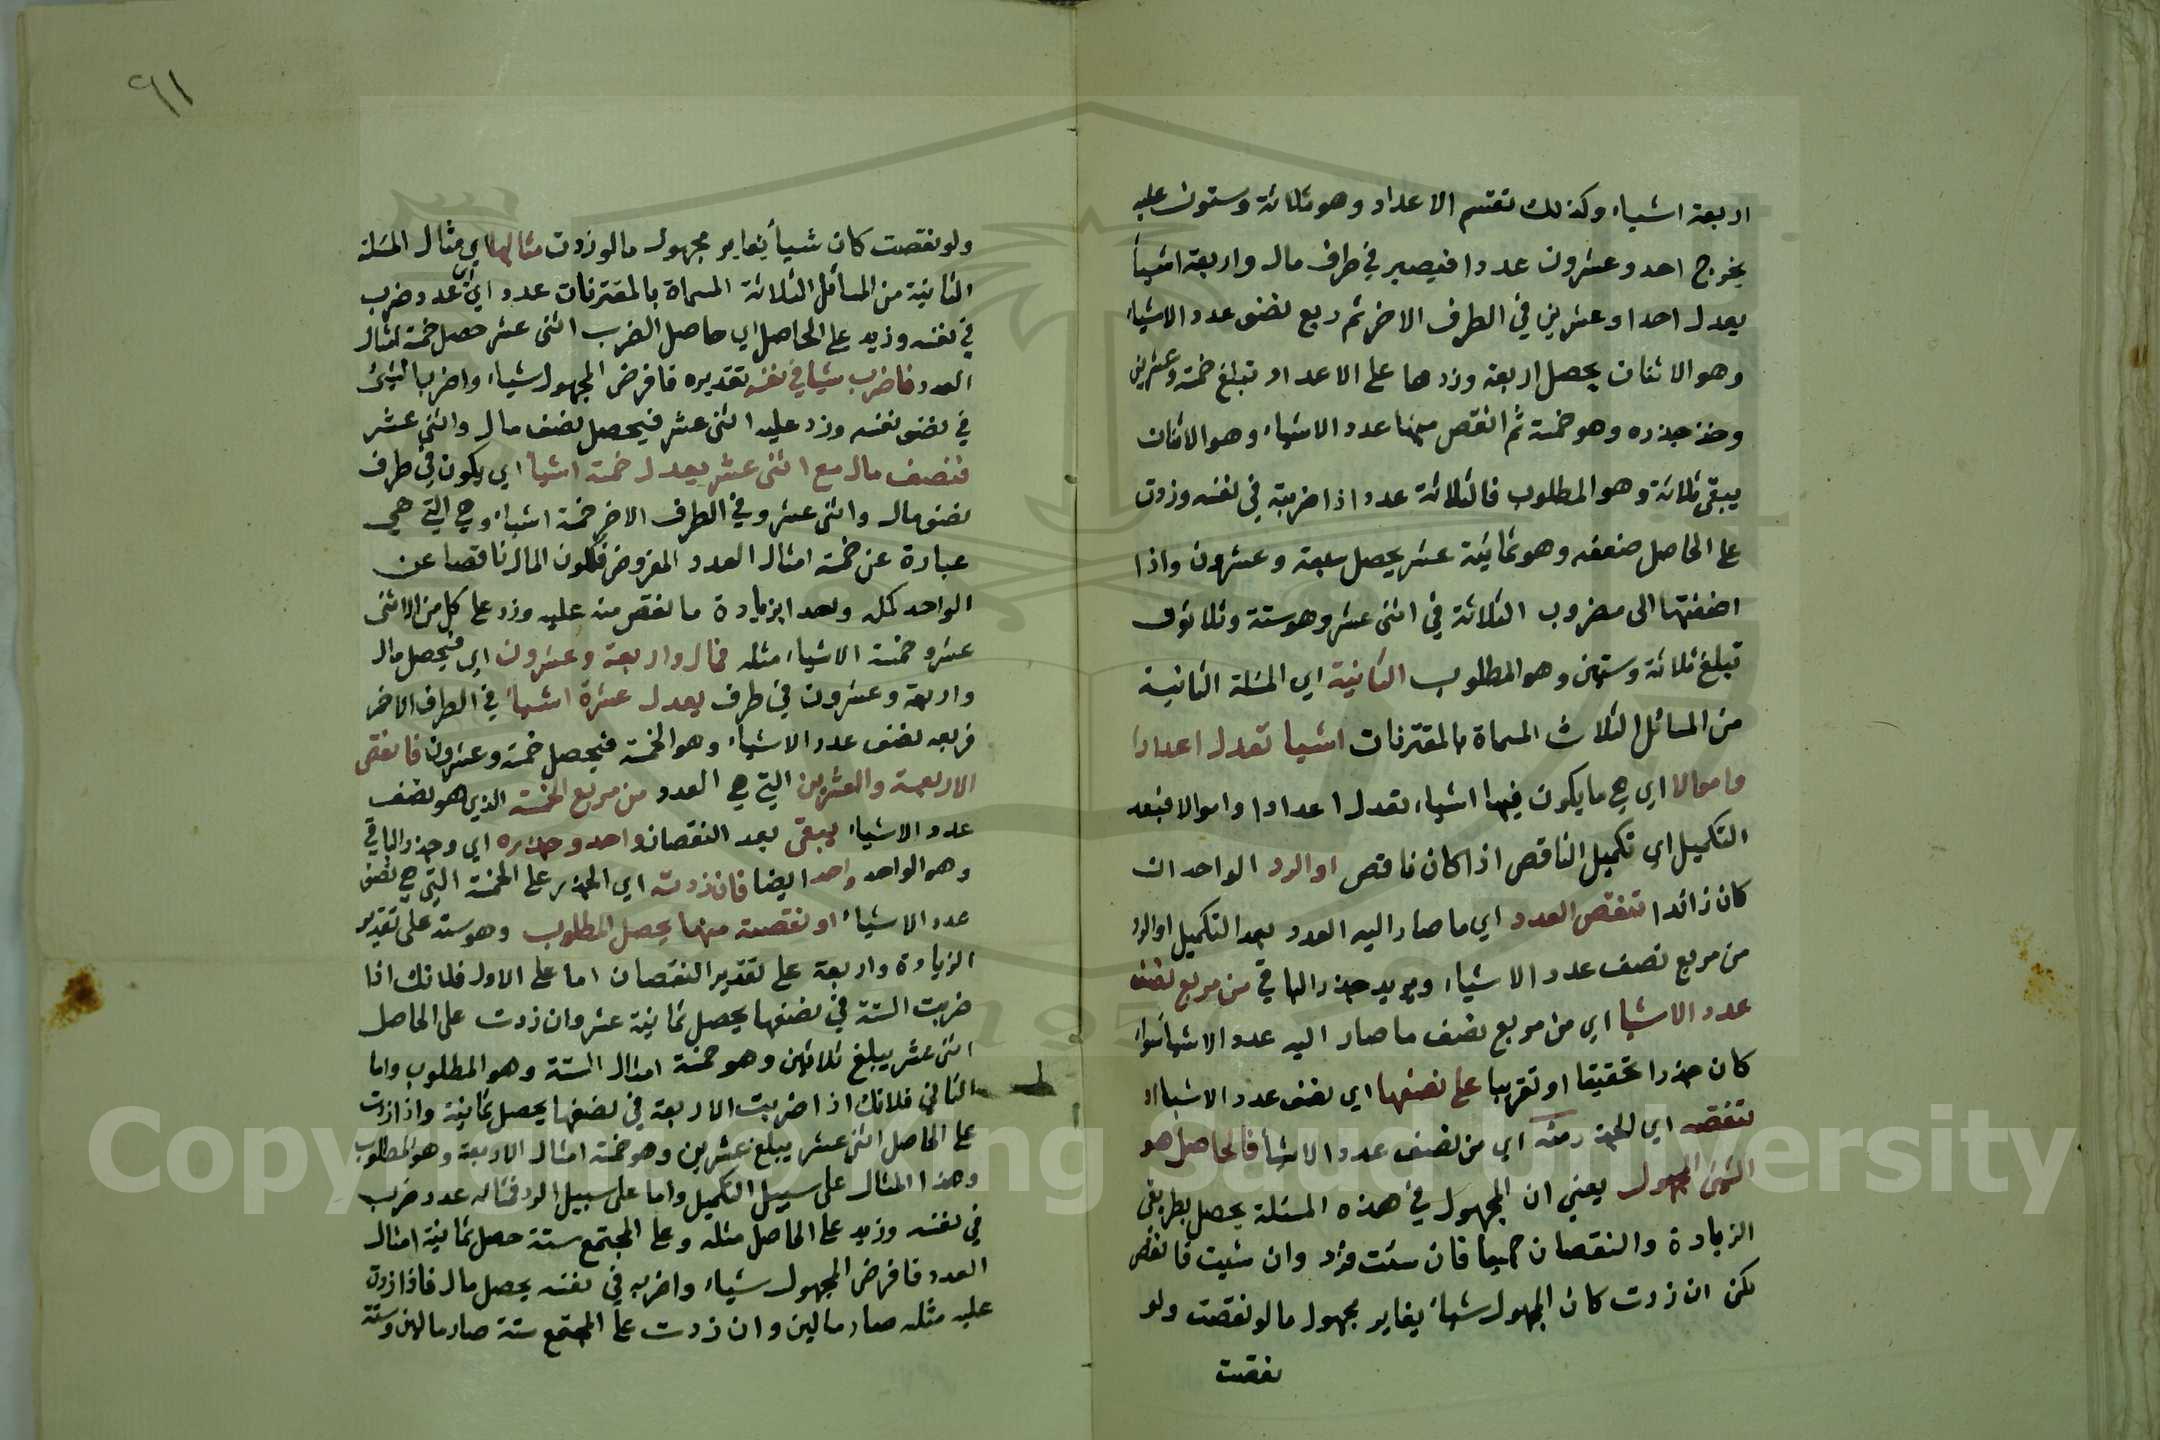 اربعة اشياء وكذلك تقسم الاعداد وهو ثلاثة وستون عليه
يخرج احد وعشرون عددا فيصير في طرف مال واربعة اشيأ
يعدل احدا وعشرين في الطرف الاخر ثم ربع نصف عدد الاشياء
وهو الاثنان يحصل اربعة وزدها على الاعداد تبلغ خمسة وعشرين
وخذ جذره وهو خمسة ثم انقص منها عدد الاشياء وهو الاثنان
يبقى ثلاثة وهو المطلوب فالثلاثة عدد اذا ضربته في نفسه وزدت
على الحاصل ضعفه وهو ثمانية عشر يحصل سبعة وعشرون واذا
اضفتها الى مضروب الثلاثة في اثنى عشر وهو ستة وثلاثون
تبلغ ثلاثة وستين وهو المطلوب الثانية اي المسئلة الثانية
من المسائل الثلاث المسماة بالمقترنات اشيا تعدل اعدادا
واموالا اي هي ما يكون فيها اشياء تعدل اعدادا واموالا فبعد
التكميل اي تكميل الناقص اذا كان ناقص او الرد الواحد ان
كان زائدا تنقص العدد اي ما صار اليه العدد بعد التكميل او الرد
من مربع نصف عدد الاشياء ويزيد جذر الباقي من مربع نصف
عدد الاشيا اي من مربع نصف ما صار اليه عدد الاشيا سواء
كان جذرا تحقيقا او تقريبا على نصفها اي نصف عدد الاشيا او
تنقصه اي الجذر منه اي من نصف عدد الاشيأ فالحاصل هو
الشئ المجهول يعني ان المجهول في هذه المسئلة يحصل بطريق
الزيادة والنقصان جميعا فان شئت فزد وان شيت فانقص
لكن ان زدت كان المجهول شيأ يغاير مجهول ما لو نقصت ولو
نقصت
٩١
ولو نقصت كان شيأ يغاير مجهول ما لو زدت مثالها اي مثال المسئلة
الثانية من المسائل الثلاثة المسماة بالمقترنات عدد اي اي عدد ضرب
في نفسه وزيد على الحاصل اي حاصل الضرب اثنى عشر حصل خمسة امثال
العدد فاضرب شيا في نفسه تقديره فافرض المجهول شياء واضرب الشئ
في نصف نفسه وزد عليه اثنى عشر فيحصل نصف مال واثنى عشر
فنصف مال مع اثنى عشر يعدل خمسة اشيا اي يكون في طرف
نصف مال واثنى عشر وفي الطرف الاخر خمسة اشياء وهي التي هي
عبارة عن خمسة امثال العدد المفروض فلكون المال ناقصا عن
الواحد كمله وحدا بزيادة ما نقص منه عليه وزد على كل من الاثنى
عشر وخمسة الاشياء مثله فمال واربعة وعشرون اي فيحصل مال
واربعة وعشرون في طرف يعدل عشرة اشيأ في الطرف الاخر
فربع نصف عدد الاشياء وهو الخمسة فيحصل خمسة وعشرون فانقص
الاربعة والعشرين التي هي العدد من مربع الخمسة الذي هو نصف
عدد الاشياء يبقى بعد النقصان واحد وجذره اي وجذر الباقي
وهو الواحد واحد ايضا فان زدته اي الجذر على الخمسة التي هي نصف
عدد الاشياء او نقصته منها يحصل المطلوب وهو ستة على تقدير
الزيادة واربعة على تقدير النقصان اما على الاول فلانك اذا
ضربت الستة في نصفها يحصل ثمانية عشر وان زدت على الحاصل
اثنى عشر يبلغ ثلاثين وهو خمسة امثال الستة وهو المطلوب واما
الثاني فلانك اذا ضربت الاربعة في نصفها يحصل ثمانية واذا زدت
على الحاصل اثنى عشر يبلغ عشرين وهو خمسة امثال الاربعة وهو المطلوب
وهذا المثال على سبيل التكميل واما على سبيل الرد فمثاله عدد ضرب
في نفسه وزيد على الحاصل مثله وعلى المجتمع ستة حصل ثمانية امثال
العدد فافرض المجهول شياء واضربه في نفسه يحصل مال فاذا زدت
عليه مثله صار مالين وان زدت على المجتمع ستة صار مالين وستة
Copyright © King Saud University